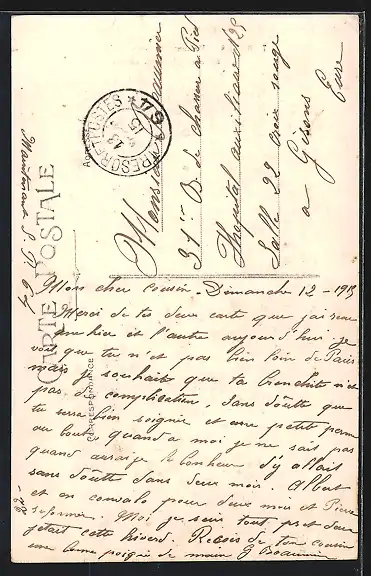 CARTE POSTALE
CORRESPONDANCE
TRESOR ET POSTES
Monsieur
31er B. de chasseur a Pied
Hospital auxiliaire n 25
Salle 22 croix rouge
a Gisors
Eure
Maintenant S. P. 64
Mon cher cousin. Dimanche 12 - 1915
Merci de tes deux carte que j'ai recu
une hier et l'autre aujourd'hui je
vois que tu n'est pas bien loin de Paris
mais je souhait que ta bronchite n'est
pas de complication, sans doûtte que
tu sera bien soignie et une petite perme
au bout, quand a moi je ne sait pas
quand aurai-je le bonheur d'y allait
sans doûtte dans deux mois. Albert
et en convalo pour deux mois et Pierre
reformer. Moi je suis tout
cette hivers. Recois de ton cousin
une bonne poigne de main G Beaumier